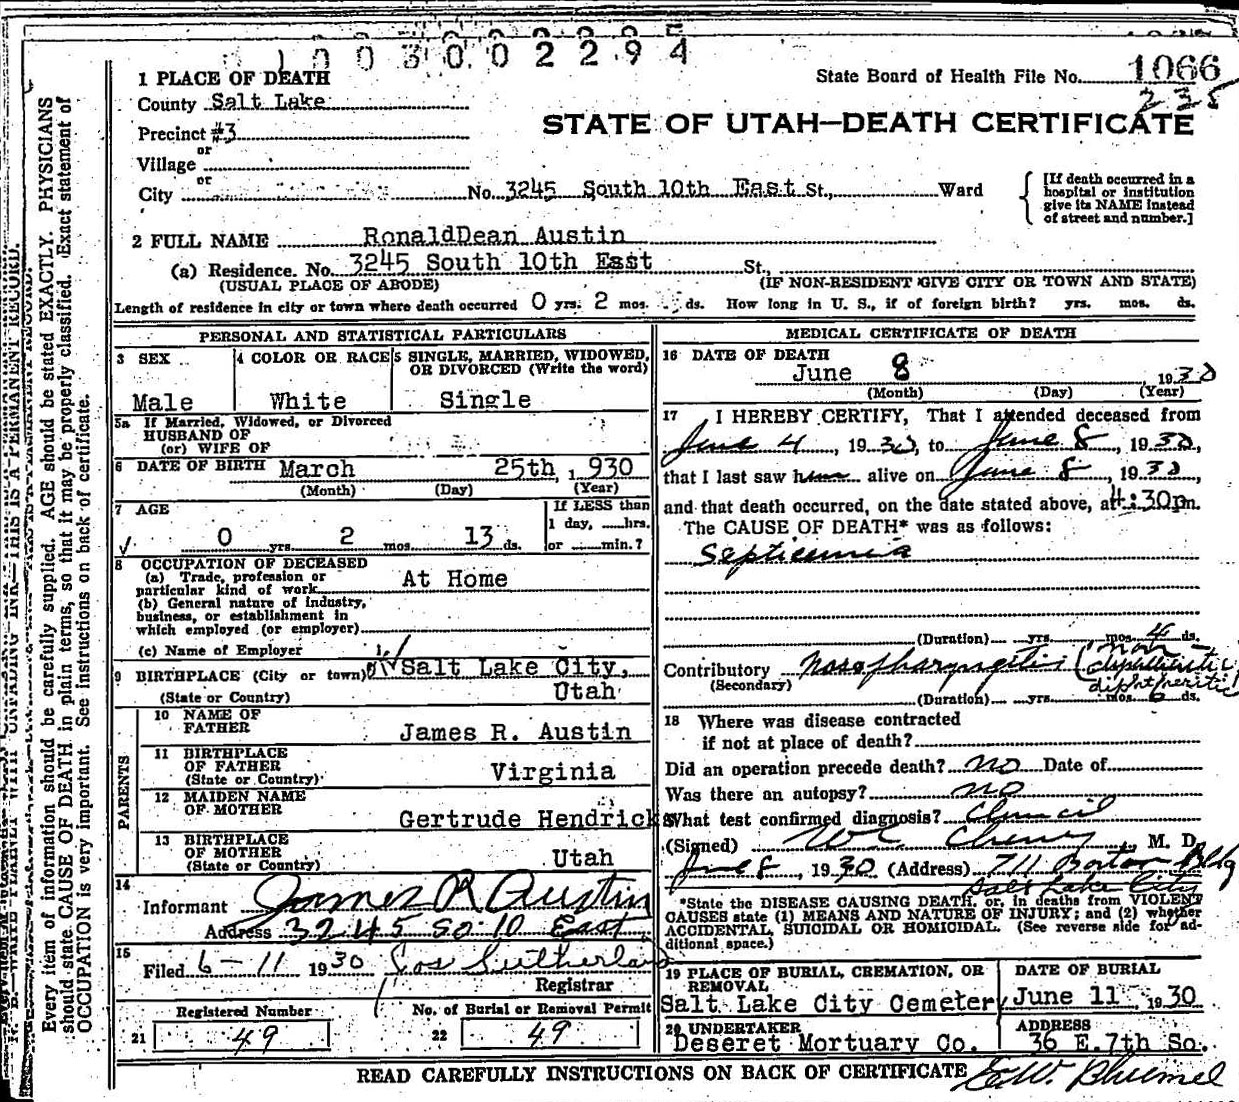 1003002294
1 PLACE OF DEATH
State Board of Health File No. 1066
County Salt Lake
235
Precinct #3
STATE OF UTAH—DEATH CERTIFICATE
or
Village
or
City No. 3245 South 10th East St., Ward
[If death occurred in a hospital or institution give its NAME instead of street and number.]
2 FULL NAME RonaldDean Austin
(a) Residence. No. 3245 South 10th East St.,
(USUAL PLACE OF ABODE) (IF NON-RESIDENT GIVE CITY OR TOWN AND STATE)
Length of residence in city or town where death occurred 0 yrs. 2 mos. ds. How long in U. S., if of foreign birth? yrs. mos. ds.
PERSONAL AND STATISTICAL PARTICULARS
3 SEX
Male
4 COLOR OR RACE
White
5 SINGLE, MARRIED, WIDOWED, OR DIVORCED (Write the word)
Single
5a If Married, Widowed, or Divorced
HUSBAND OF
(or) WIFE OF
6 DATE OF BIRTH March 25th, 1930
(Month) (Day) (Year)
7 AGE
0 yrs. 2 mos. 13 ds.
If LESS than
1 day, hrs.
or min.?
8 OCCUPATION OF DECEASED
(a) Trade, profession or
particular kind of work At Home
(b) General nature of industry,
business, or establishment in
which employed (or employer)
(c) Name of Employer
9 BIRTHPLACE (City or town) Salt Lake City,
(State or Country) Utah
PARENTS
10 NAME OF FATHER James R. Austin
11 BIRTHPLACE OF FATHER
(State or Country) Virginia
12 MAIDEN NAME OF MOTHER Gertrude Hendricks
13 BIRTHPLACE OF MOTHER
(State or Country) Utah
14
Informant James R Austin
Address 3245 So 10 East
15
Filed 6-11 1930 Jos Sutherland
Registrar
Registered Number
21 49
No. of Burial or Removal Permit
22 49
MEDICAL CERTIFICATE OF DEATH
16 DATE OF DEATH
June 8 1930
(Month) (Day) (Year)
17 I HEREBY CERTIFY, That I attended deceased from
June 4, 1930, to June 8, 1930,
that I last saw him alive on June 8, 1930,
and that death occurred, on the date stated above, at 4:30 p.m.
The CAUSE OF DEATH* was as follows:
Septicemia
(Duration) yrs. mos. 4 ds.
Contributory Nasopharyngitis (non-diphtheritic
(Secondary) diphtheritic)
(Duration) yrs. mos. 6 ds.
18 Where was disease contracted
if not at place of death?
Did an operation precede death? no Date of
Was there an autopsy? no
What test confirmed diagnosis? Clinical
(Signed) M. D.
June 8, 1930 (Address) 711 Boston Bldg
Salt Lake City
*State the DISEASE CAUSING DEATH, or, in deaths from VIOLENT
CAUSES state (1) MEANS AND NATURE OF INJURY; and (2) whether
ACCIDENTAL, SUICIDAL OR HOMICIDAL. (See reverse side for ad-
ditional space.)
19 PLACE OF BURIAL, CREMATION, OR REMOVAL
Salt Lake City Cemetery
DATE OF BURIAL
June 11 1930
20 UNDERTAKER
Deseret Mortuary Co.
ADDRESS
36 E. 7th So.
READ CAREFULLY INSTRUCTIONS ON BACK OF CERTIFICATE
Every item of information should be carefully supplied. AGE should be stated EXACTLY. PHYSICIANS
should state CAUSE OF DEATH in plain terms, so that it may be properly classified. Exact statement of
OCCUPATION is very important. See instructions on back of certificate.